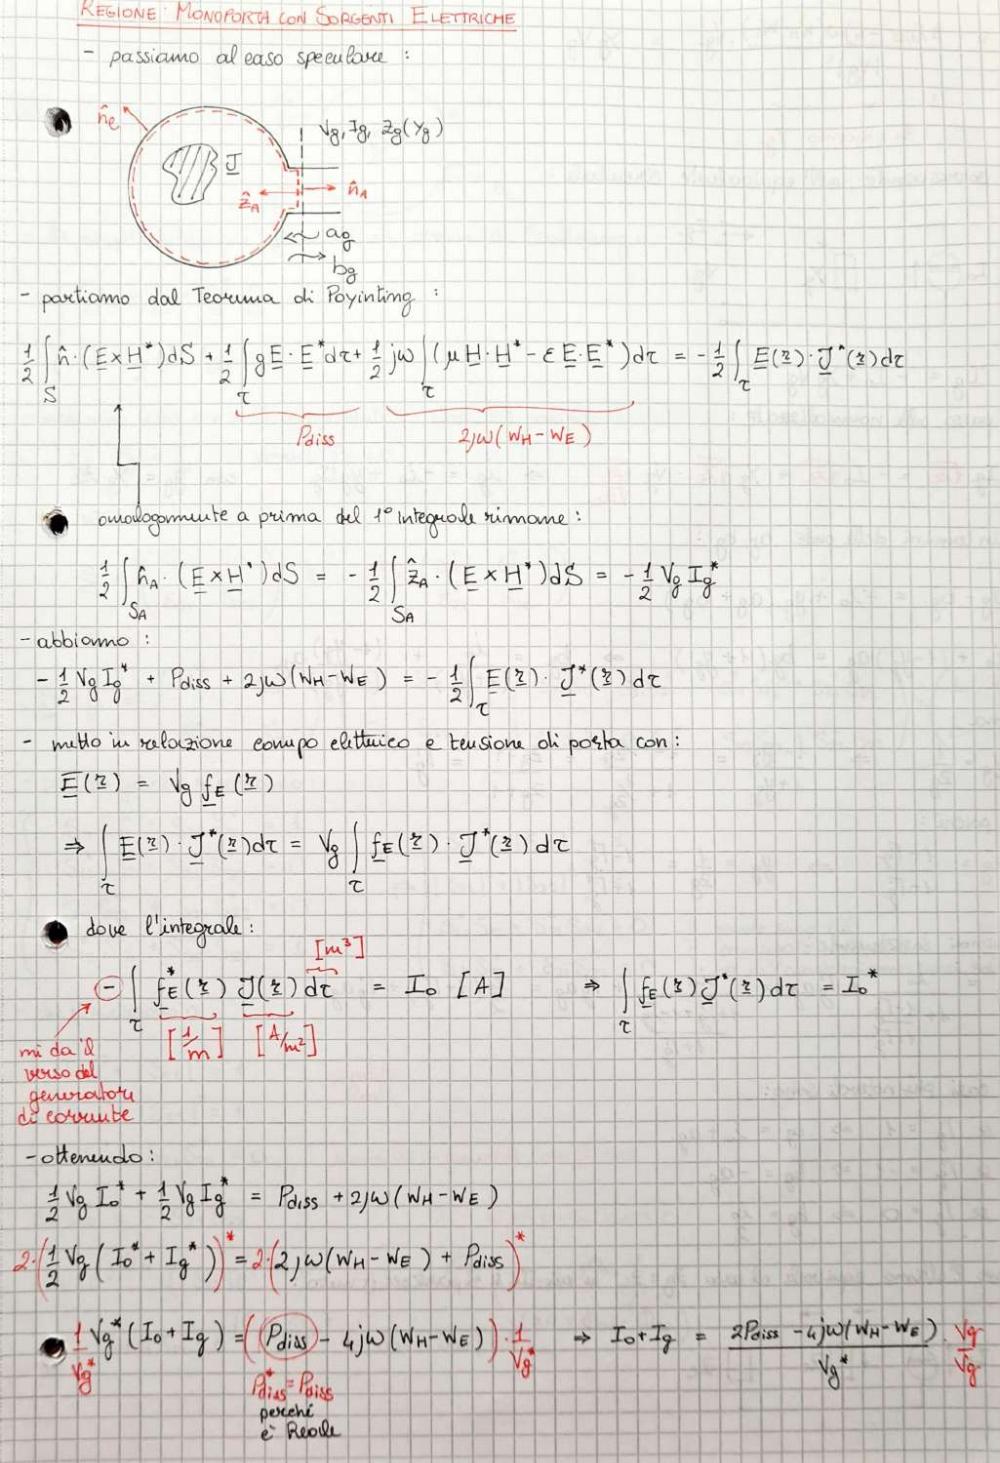 REGIONE MONOPORTA CON SORGENTI ELETTRICHE
- passiamo al caso speculare :
n̂e
Vg, Ig, Zg(Yg)
J
ẑA
n̂A
ag
bg
- partiamo dal Teorema di Poyinting :
1/2 ∫_S n̂·(E×H*)dS + 1/2 ∫_τ gE·E*dτ + 1/2 jω ∫_τ (μH·H* - εE·E*)dτ = -1/2 ∫_τ E(r)·J*(r)dτ
Pdiss
2jω(WH-WE)
omologamente a prima del 1° integrale rimane :
1/2 ∫_SA n̂A·(E×H*)dS = -1/2 ∫_SA ẑA·(E×H*)dS = -1/2 Vg Ig*
- abbiamo :
-1/2 Vg Ig* + Pdiss + 2jω(WH-WE) = -1/2 ∫_τ E(r)·J*(r)dτ
- metto in relazione campo elettrico e tensione di porta con :
E(r) = Vg fE(r)
⇒ ∫_τ E(r)·J*(r)dτ = Vg ∫_τ fE(r)·J*(r)dτ
dove l'integrale :
[m³]
- ∫_τ fE*(r) J(r) dτ = I0 [A] ⇒ ∫_τ fE(r) J*(r)dτ = I0*
[1/m] [A/m²]
mi da il
verso del
generatore
di corrente
- ottenendo :
1/2 Vg I0* + 1/2 Vg Ig* = Pdiss + 2jω(WH-WE)
2·(1/2 Vg(I0* + Ig*))* = 2·(2jω(WH-WE) + Pdiss)*
1/Vg* Vg*(I0+Ig) = (Pdiss - 4jω(WH-WE))·1/Vg* ⇒ I0+Ig = 2Pdiss - 4jω(WH-WE)/Vg* · Vg/Vg
P*diss = Pdiss
perché
è Reale